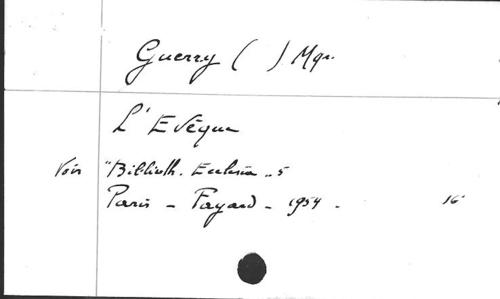 Guerry ( ) Mgr.
L'Evêque
Voir "Biblioth. Ecclesia" 5
Paris - Fayard - 1954 - 16